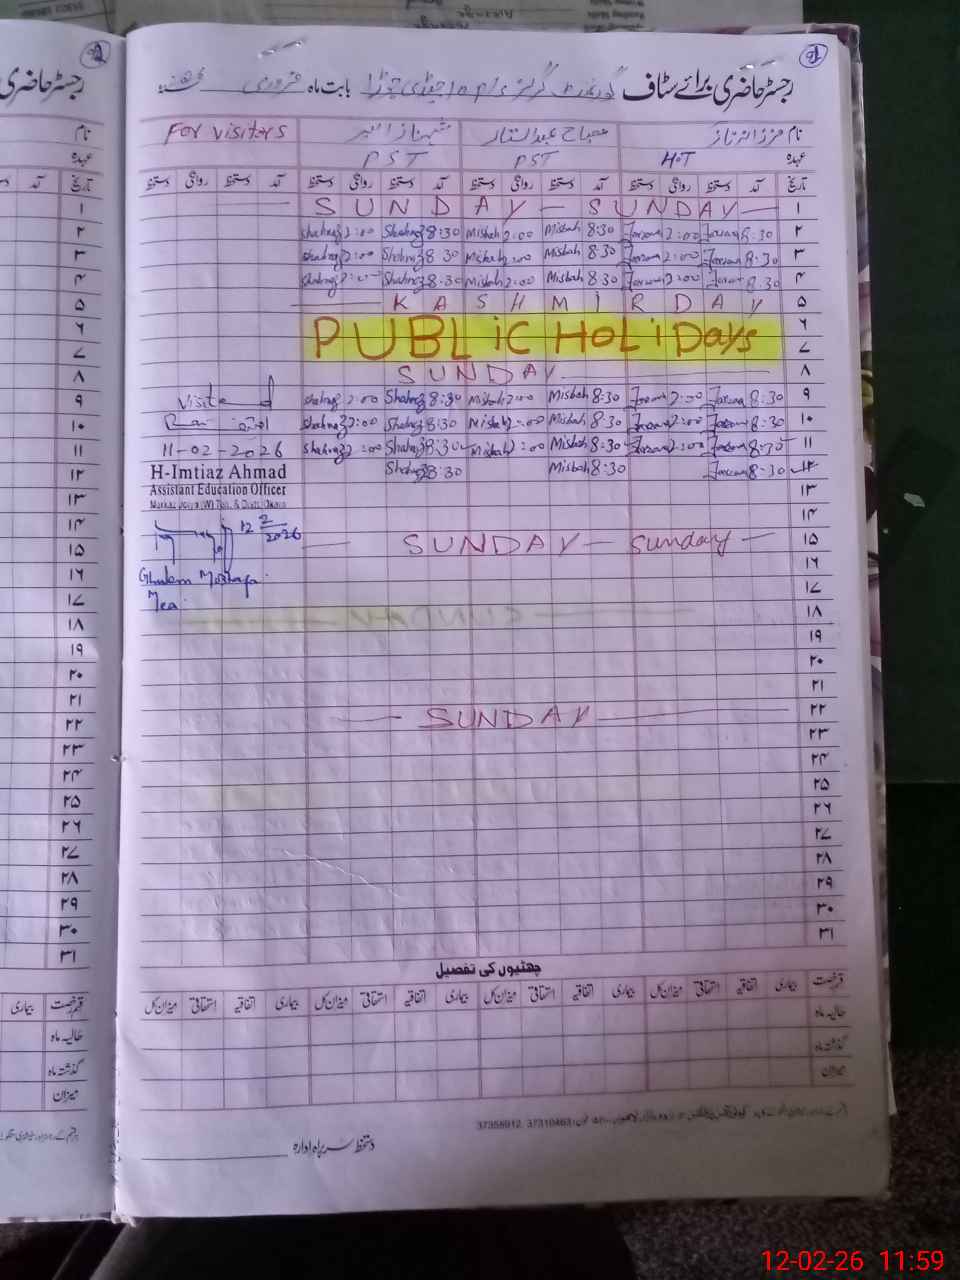 رجسٹر حاضری برائے سٹاف گورنمنٹ گرلز بابت ماہ فروری
نام فرزانہ ناز مصباح عبدالستار شہناز For visitors
عہدہ HT PST PST
تاریخ آمد دستخط روانگی دستخط آمد دستخط روانگی دستخط آمد دستخط روانگی دستخط آمد دستخط روانگی دستخط
۱ SUNDAY — SUNDAY —
۲ Shahnaz 2:00 Shahnaz 8:30 Misbah 2:00 Misbah 8:30 Farzana 2:00 Farzana 8:30
۳ Shahnaz 2:00 Shahnaz 8:30 Misbah 2:00 Misbah 8:30 Farzana 2:00 Farzana 8:30
۴ Shahnaz 2:00 Shahnaz 8:30 Misbah 2:00 Misbah 8:30 Farzana 2:00 Farzana 8:30
۵ KASHMIR DAY
۶
PUBLIC HOLIDAYS
۷
۸ SUNDAY
۹ Visited Shahnaz 2:00 Shahnaz 8:30 Misbah 2:00 Misbah 8:30 Farzana 2:00 Farzana 8:30
۱۰ Shahnaz 2:00 Shahnaz 8:30 Misbah 2:00 Misbah 8:30 Farzana 2:00 Farzana 8:30
۱۱ 11-02-2026 Shahnaz 2:00 Shahnaz 8:30 Misbah 2:00 Misbah 8:30 Farzana 2:00 Farzana 8:30
۱۲ H-Imtiaz Ahmad Shahnaz 8:30 Misbah 8:30 Farzana 8:30
Assistant Education Officer
۱۳
۱۴ 12/2/2026
۱۵ — SUNDAY — Sunday —
۱۶ Ghulam Mustafa
۱۷ Mea
۱۸
۱۹
۲۰
۲۱
۲۲ — SUNDAY —
۲۳
۲۴
۲۵
۲۶
۲۷
۲۸
۲۹
۳۰
۳۱
چھٹیوں کی تفصیل
قسم رخصت بیماری اتفاقیہ استحقاقی میزان کل بیماری اتفاقیہ استحقاقی میزان کل بیماری اتفاقیہ استحقاقی میزان کل بیماری اتفاقیہ استحقاقی میزان کل
حالیہ ماہ
گذشتہ ماہ
میزان
دستخط سربراہ ادارہ
12-02-26 11:59